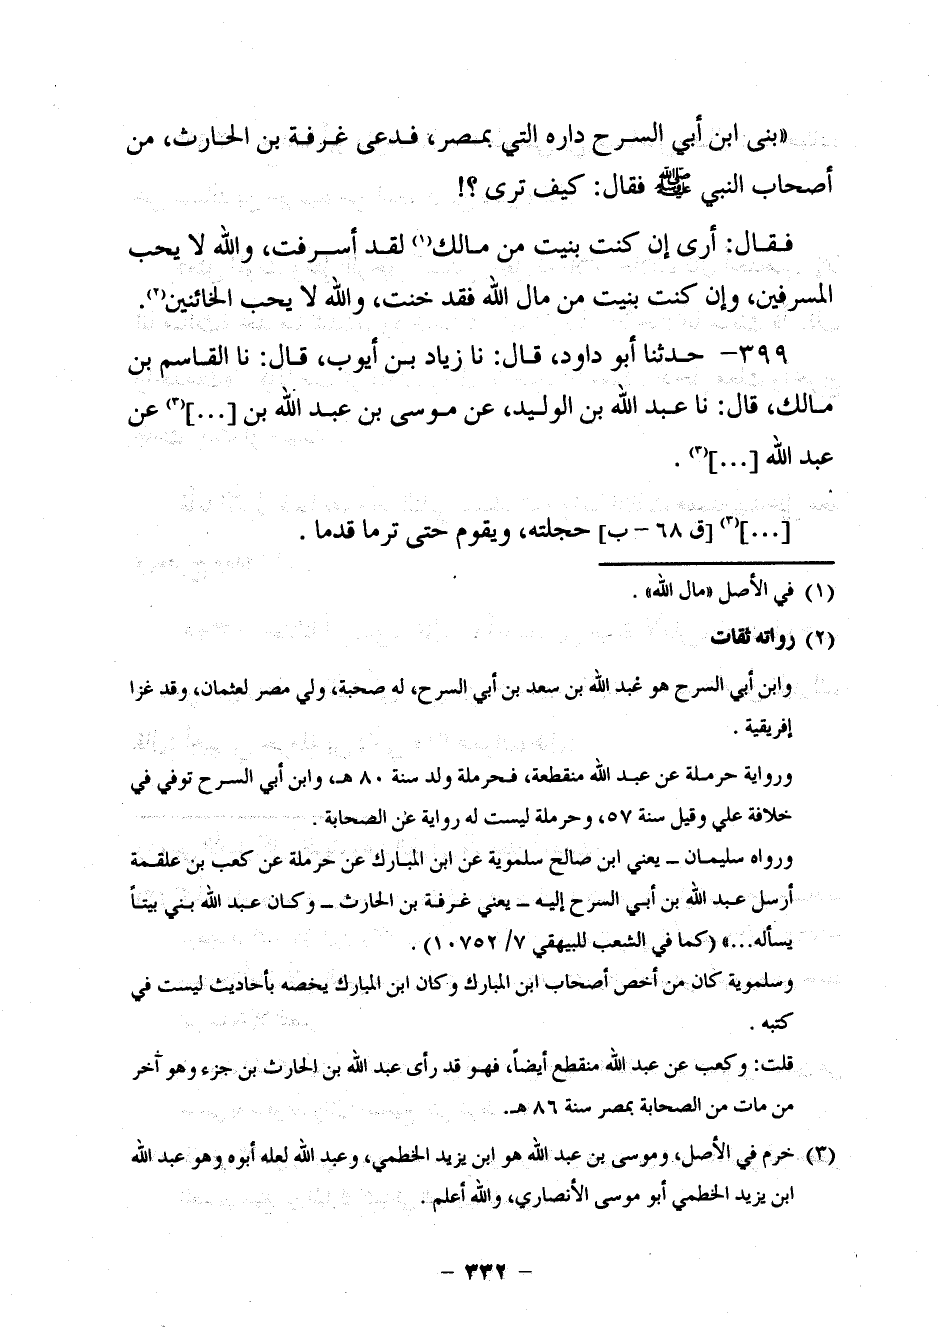 «بنى ابن أبي السرح داره التي بمصر، فدعى غرفة بن الحارث، من
أصحاب النبي ﷺ فقال: كيف ترى ؟!
فقال: أرى إن كنت بنيت من مالك(١) لقد أسرفت، والله لا يحب
المسرفين، وإن كنت بنيت من مال الله فقد خنت، والله لا يحب الخائنين(٢).
٣٩٩- حدثنا أبو داود، قال: نا زياد بن أيوب، قال: نا القاسم بن
مالك، قال: نا عبد الله بن الوليد، عن موسى بن عبد الله بن [...](٣) عن
عبد الله [...](٣) .
[...](٣) [ق ٦٨ - ب] حجلته، ويقوم حتى ترما قدما .
(١) في الأصل «مال الله» .
(٢) رواته ثقات
وابن أبي السرح هو عبد الله بن سعد بن أبي السرح، له صحبة، ولي مصر لعثمان، وقد غزا
إفريقية .
ورواية حرملة عن عبد الله منقطعة، فحرملة ولد سنة ٨٠ هـ، وابن أبي السرح توفي في
خلافة علي وقيل سنة ٥٧، وحرملة ليست له رواية عن الصحابة .
ورواه سليمان ـ يعني ابن صالح سلموية عن ابن المبارك عن حرملة عن كعب بن علقمة
أرسل عبد الله بن أبي السرح إليه ـ يعني غرفة بن الحارث ـ وكان عبد الله بني بيتاً
يسأله...» (كما في الشعب للبيهقي ٧/ ١٠٧٥٢) .
وسلموية كان من أخص أصحاب ابن المبارك وكان ابن المبارك يخصه بأحاديث ليست في
كتبه .
قلت: وكعب عن عبد الله منقطع أيضاً، فهو قد رأى عبد الله بن الحارث بن جزء وهو آخر
من مات من الصحابة بمصر سنة ٨٦ هـ.
(٣) خرم في الأصل، وموسى بن عبد الله هو ابن يزيد الخطمي، وعبد الله لعله أبوه وهو عبد الله
ابن يزيد الخطمي أبو موسى الأنصاري، والله أعلم .
- ٣٣٢ -